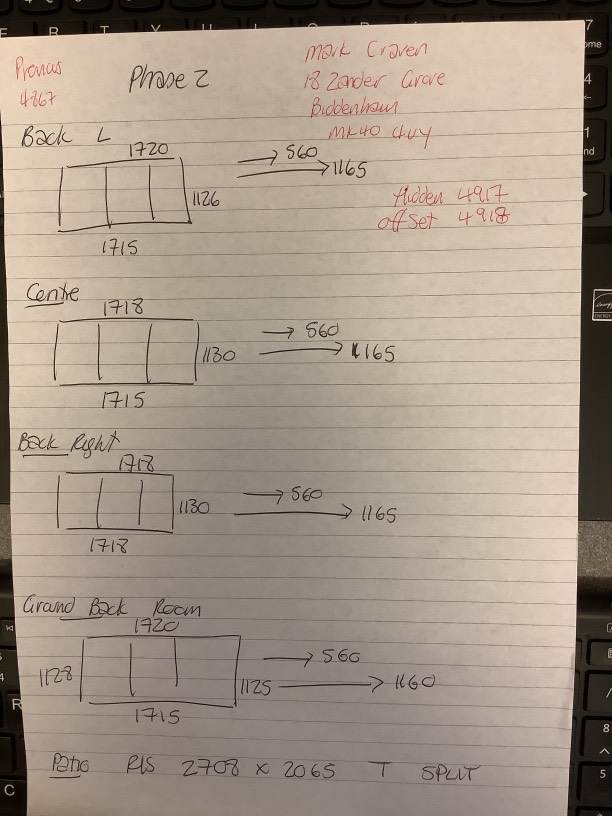 Previous
4867
Phase 2
Mark Craven
18 Zander Grove
Biddenham
MK40 4uy
Back L
1720
560
1165
1126
Hidden 4917
offset 4918
1715
Centre
1718
560
1130
1165
1715
Back Right
1718
560
1130
1165
1718
Ground Back Room
1720
560
1128
1125
1160
1715
Patio RLS 2708 x 2065 T SPLIT